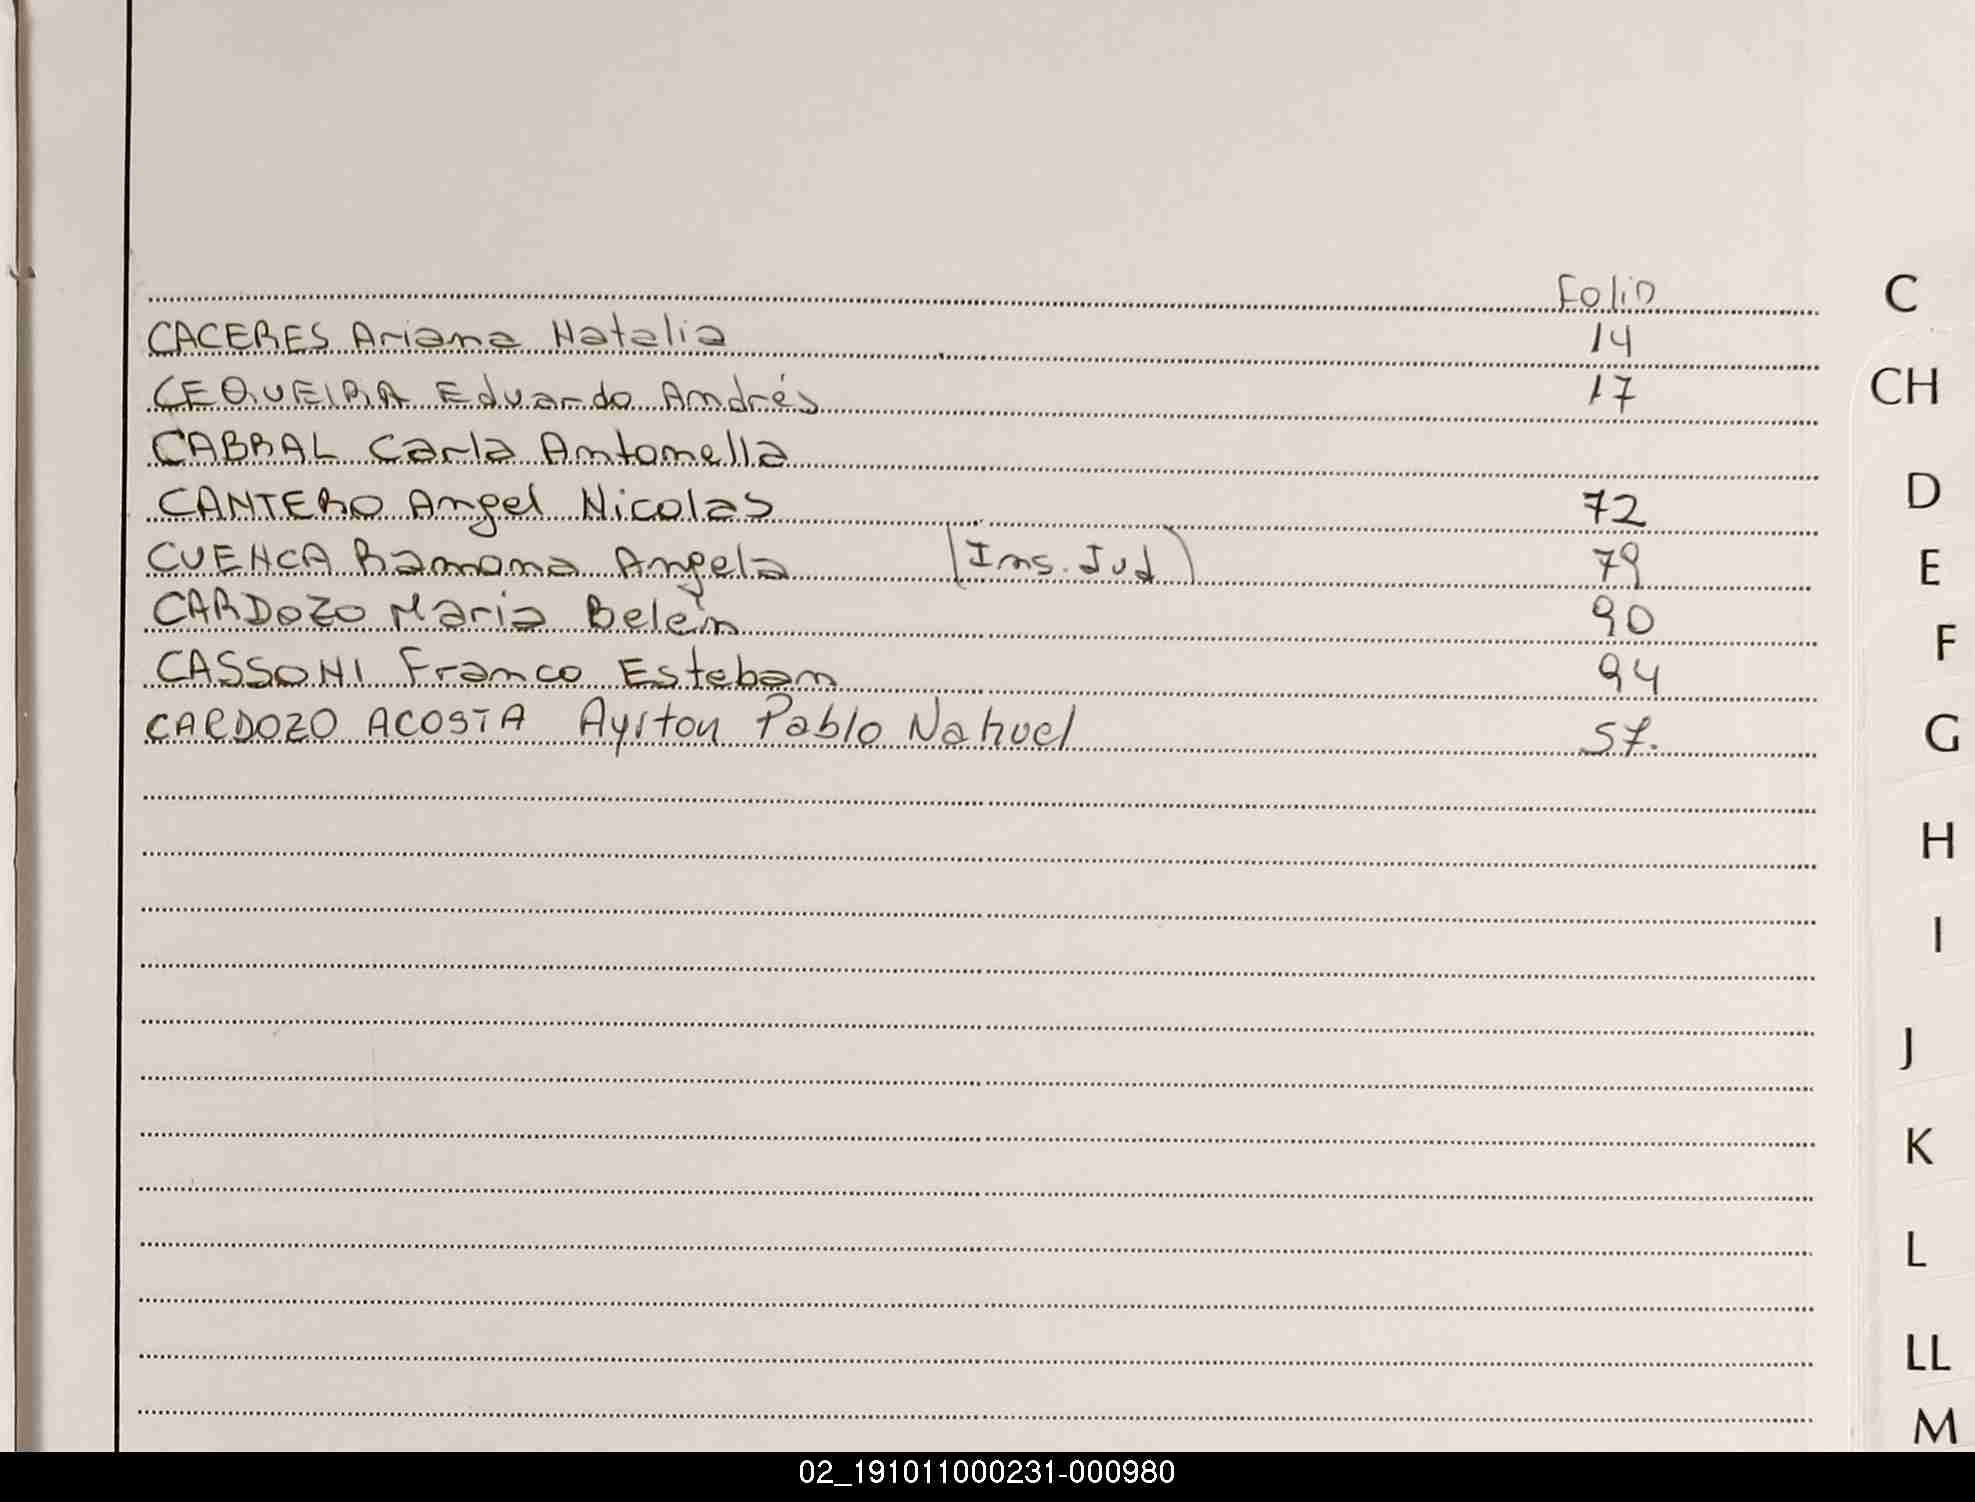 Folio
C
CACERES Ariana Natalia 14
CH
CEQUEIRA Eduardo Andrés 17
CABRAL Carla Antonella
D
CANTERO Angel Nicolas 72
CUENCA Ramona Angela (Ins. Jud) 79
E
CARDOZO Maria Belén 90
F
CASSONI Franco Esteban 94
CARDOZO ACOSTA Ayrton Pablo Nahuel 57.
G
H
I
J
K
L
LL
M
02_191011000231-000980